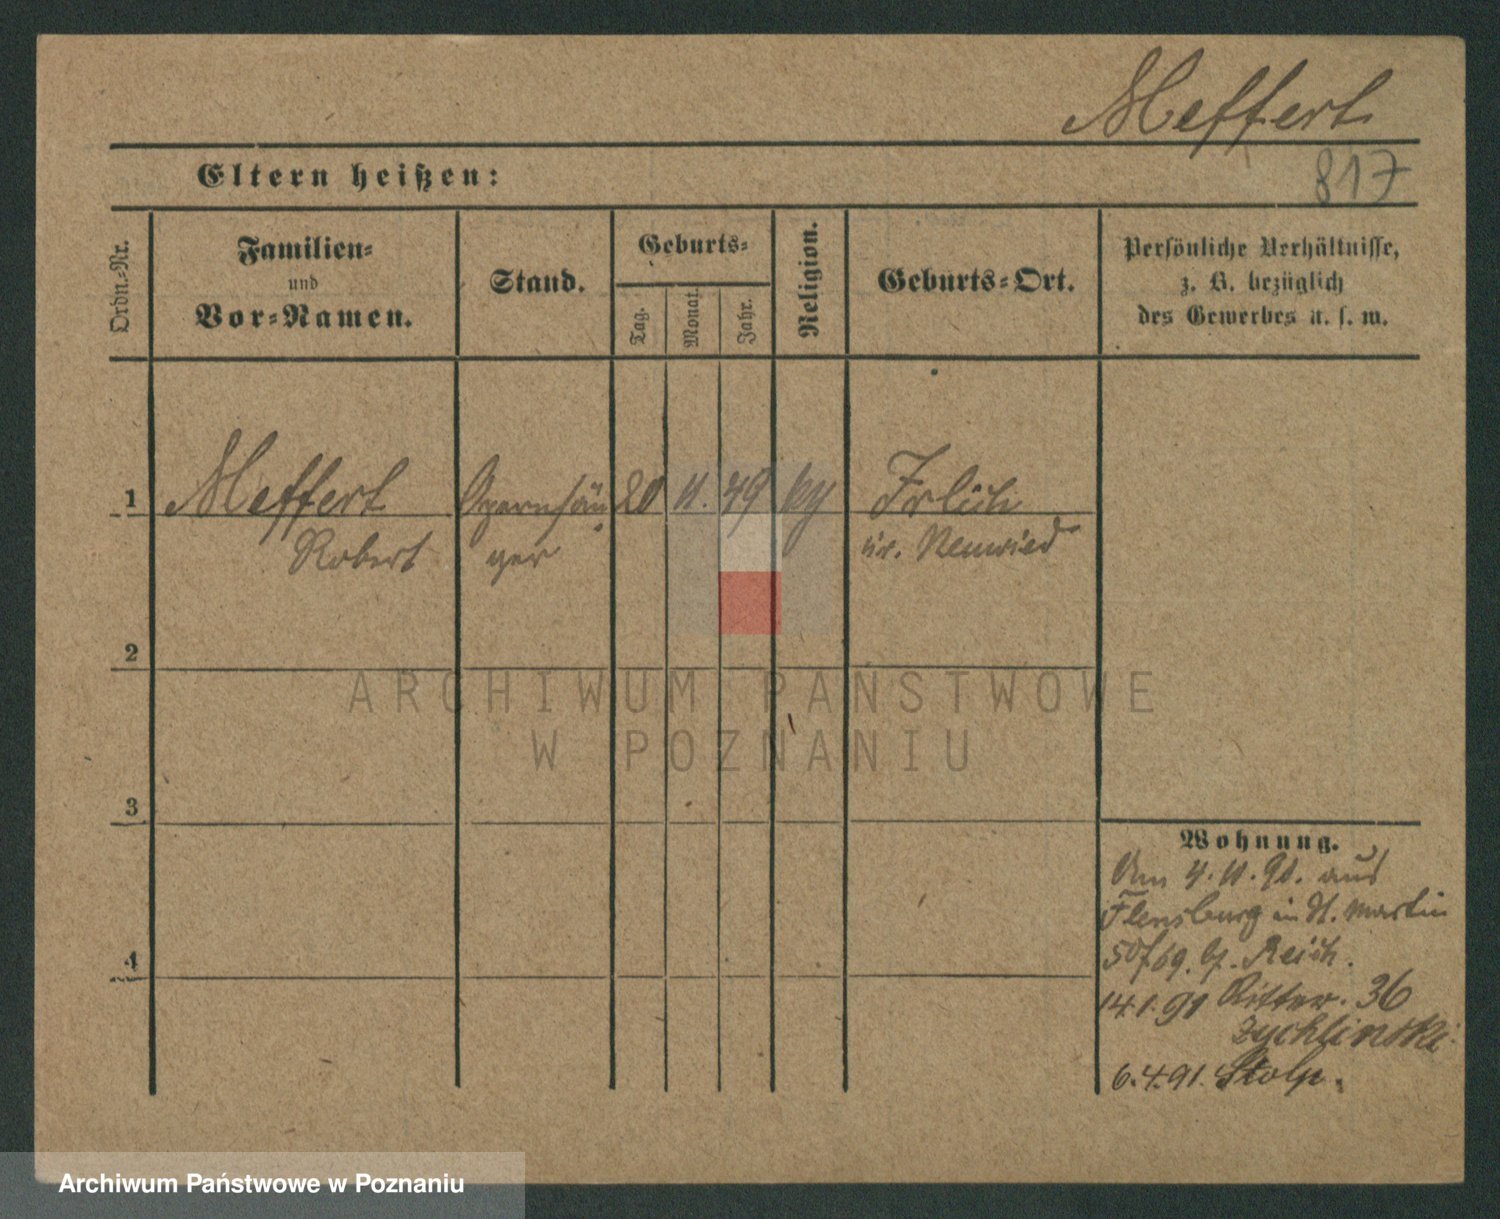 Meffert
817
Eltern heißen:
Ordn.-Nr.
Familien-
und
Vor-Namen.
Stand.
Geburts-
Tag.
Monat.
Jahr.
Religion.
Geburts-Ort.
Persönliche Verhältnisse,
z. B. bezüglich
des Gewerbes u. s. w.
1 Meffert Opernsän 20 11. 49 Irlich
Robert ger Kr. Neuwied
2
3
4
Wohnung.
Am 4. 11. 90. aus
Flensburg in St. Martin
50/69. b. Reich.
14.1.91 Ritter. 36
Zychlinski
6.4.91. Stolp.
ARCHIWUM PAŃSTWOWE
W POZNANIU
Archiwum Państwowe w Poznaniu